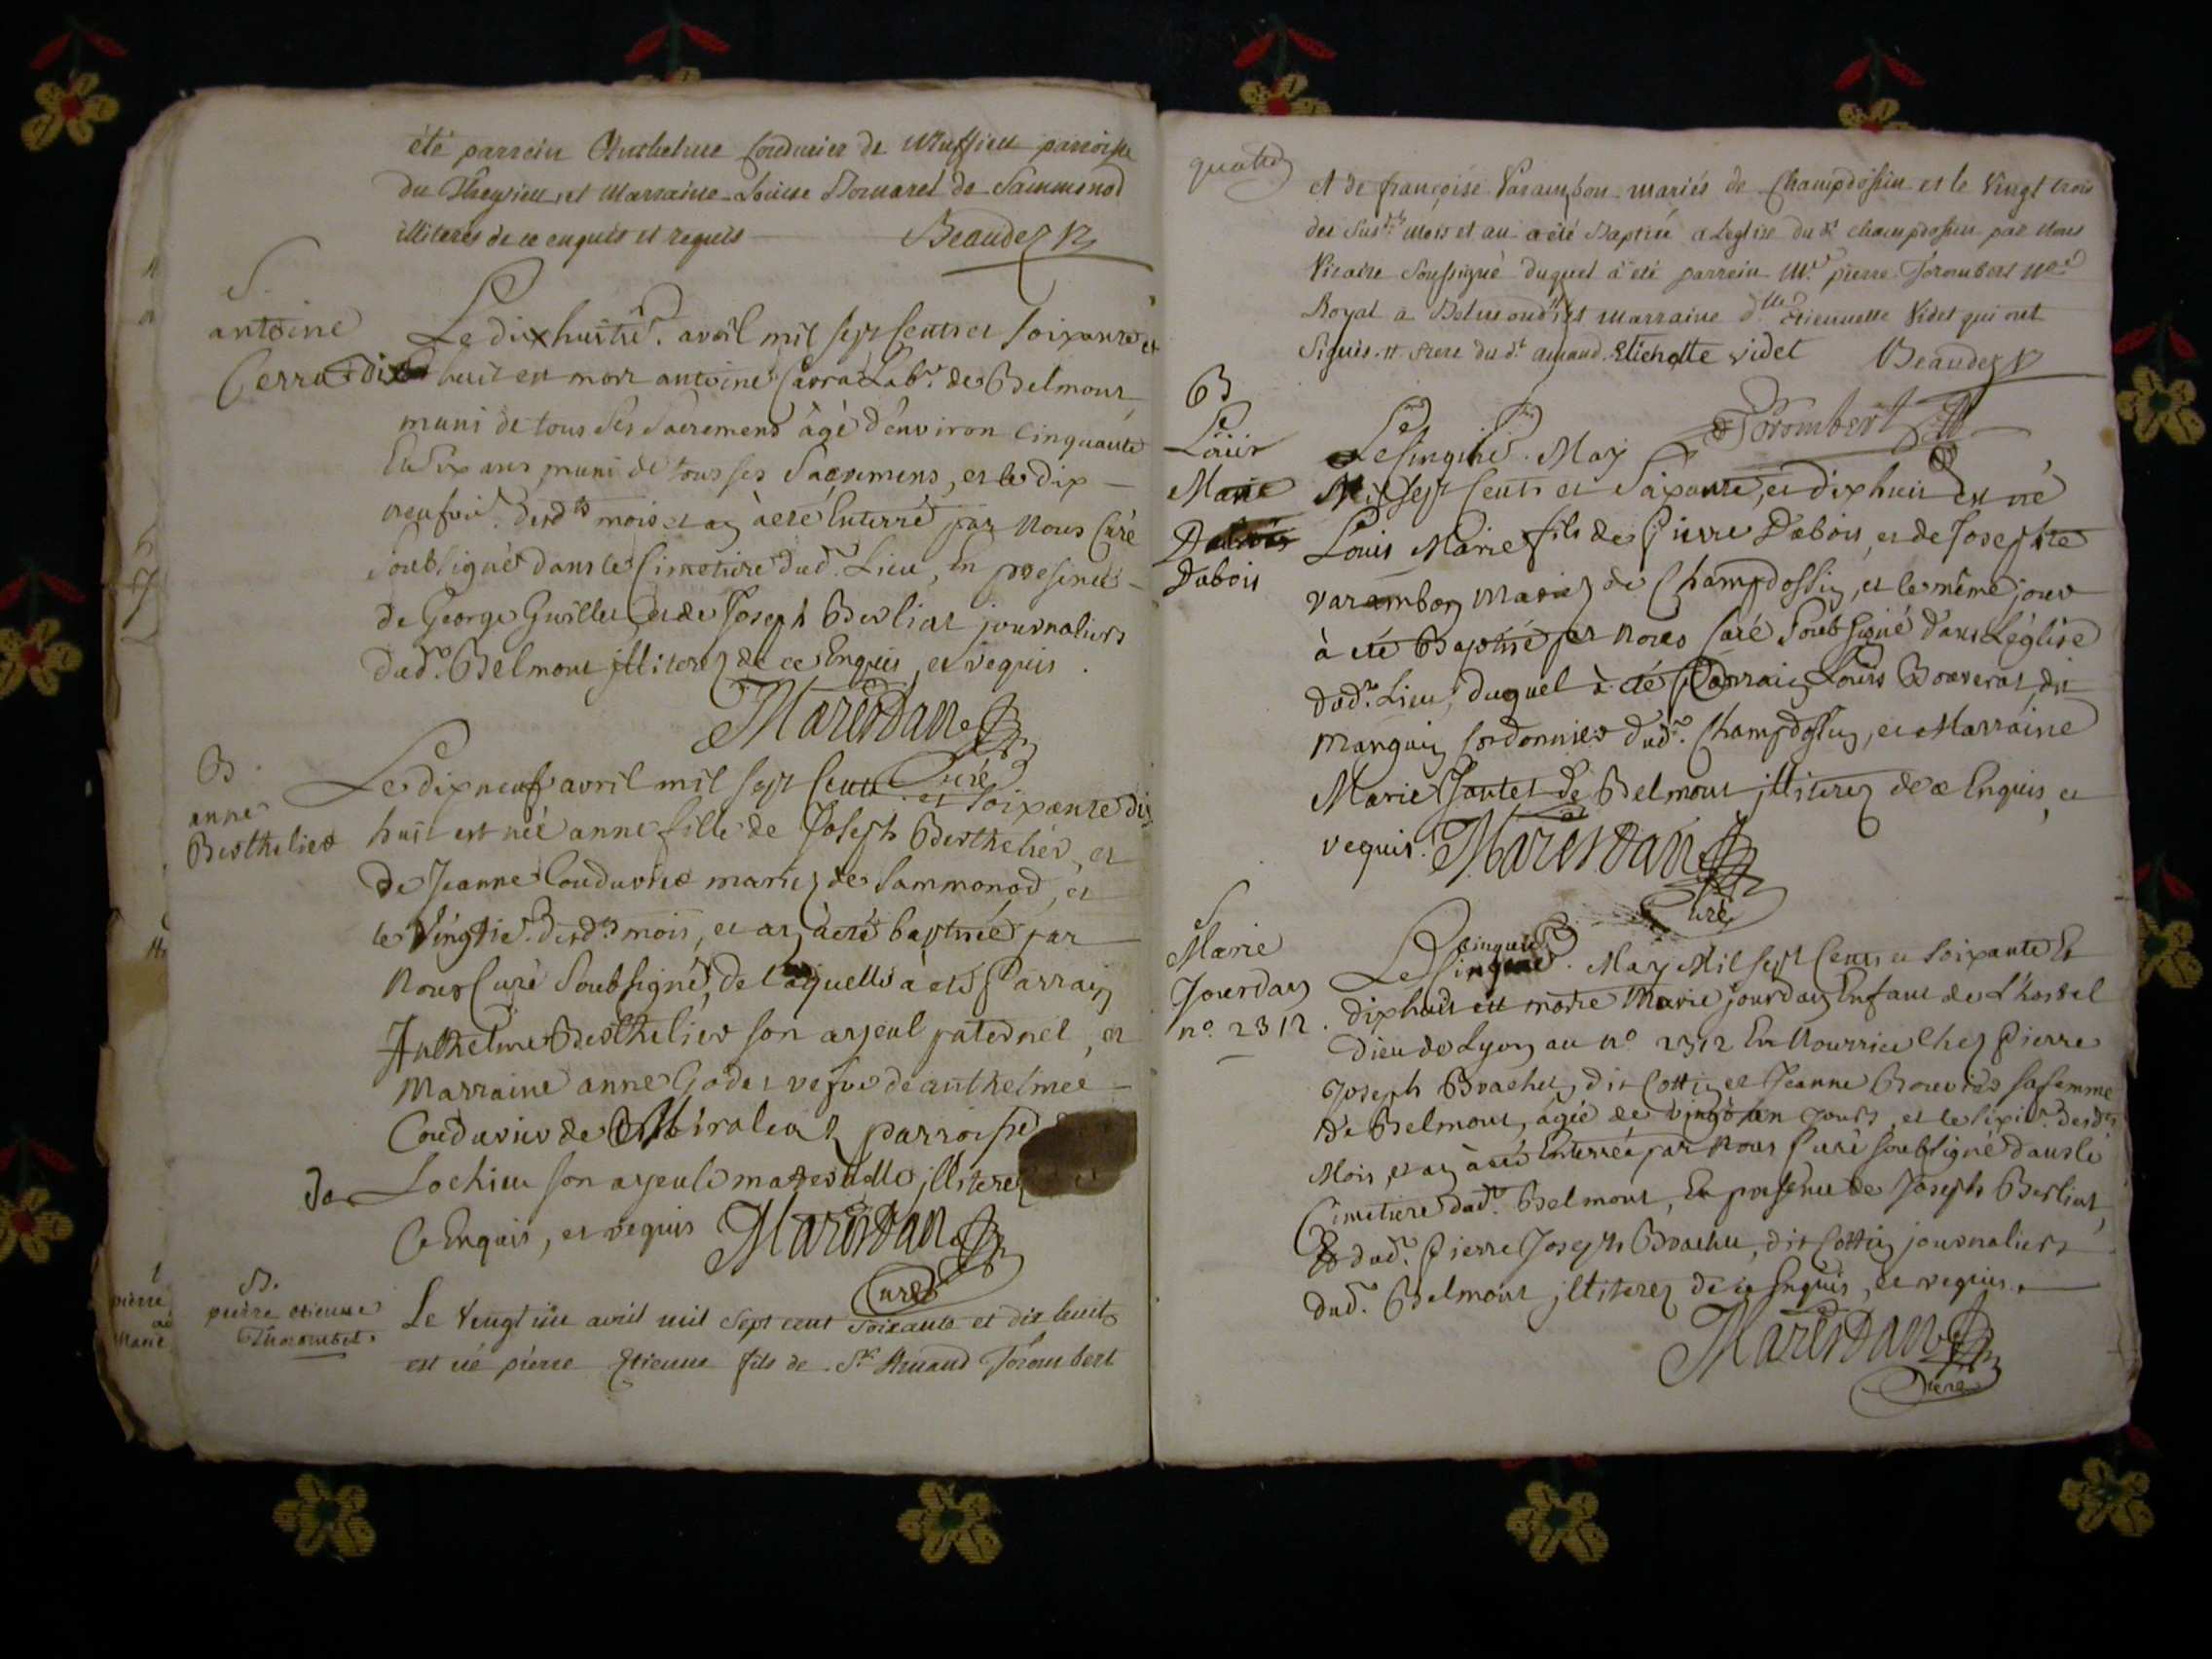 été parrein Anthelme Coudurier de Muffieu paroisse
du Theyzieu et Marraine Louise Bornarel de Sammonod
illiteres de ce enquis et requis Beaudez V
S.
antoine
Cerra
Le dixhuitie. avril mil sept Cents et soixante et
dix huit est mort antoine Carra Labr. de Belmont
muni de tous ses sacremens âgé d'environ Cinquante
Six ans muni de tous ses Sacremens, et le dix
neufvie. desds mois et an à été Enterré par Nous Curé
soubsigné dans le Cimetiere dud. Lieu, En presence
de George Guillet et de Joseph Berliat journaliers
dud. Belmont jlliterez de ce Enquis, et requis.
Marestan
Curé
B.
anne
Berthelier
Le dix neuf avril mil sept Cents et soixante dix
huit est née anne fille de Joseph Berthelier, et
de Jeanne Couduriee mariez de Sammonod, et
le Vingtie. desds mois, et an à été baptisée par
Nous Curé Soubsigné, de laquelle à été Parrain
Anthelme Berthelier son ayeul paternel, et
Marraine anne Godet vefve de anthelmee
Coudurier de parroisse
de Lochieu son ayeule maternelle jlliterez
Ce Enquis, et requis Marestan
Curé
B.
pierre etienne
Thorombet.
pierre
Marie
Le Vengt un avril mil sept cent soixante et dix huit
est né pierre Etienne fils de Sr. Amand Torombert
quatre
et de françoise Varambon mariés de Champdossin et le Vingt trois
des susdts mois et an a été Baptisé a Leglise du dt champdossin par Nous
Vicaire Soussigné duquel à été parrein Mre. pierre Torombert Nre
Royal a Belmond et marraine dlle Etiennette Videt qui ont
Signés. et frere du dt. amand. Etienette videt Beaudez V
Torombert
B
Louis
Marie
Dubois
Le Cinquie. May
Mil sept Cents et Soixante, et dixhuit est né
Louis Marie fils de Pierre Dubois, et de Josephte
varambon mariez de Champdossin, et le même jour
à été Baptisé par nous Curé Soubsigné dans L'église
dud. Lieu, duquel à été Parrain Louis Bouverat dit
Manguin Cordonnier dud. Champdossin, et Marraine
Marie Jantet de Belmont jlliterez de ce Enquis, et
requis. Marestan
Curé
S
Marie
Jourdan
no. 2312.
Le Cinquie. May Mil sept Cents et soixante Et
dixhuit est morte Marie jourdan Enfant de L'hostel
Dieu de Lyon au no 2312 En Nourrice Chez Pierre
Joseph Brachet dit Cottin et Jeanne Bouvier sa femme
de Belmont, agée de vingt un jours, et le sixie. desdts
Mois, et an à été Enterrée par Nous Curé soubsigné dans le
Cimetiere dud. Belmont, En presence de Joseph Berliat,
Et dud. Pierre Joseph Brachet, dit Cottin journaliers
dud. Belmont jlliterez de ce Enquis, et requis.
Marestan
Curé